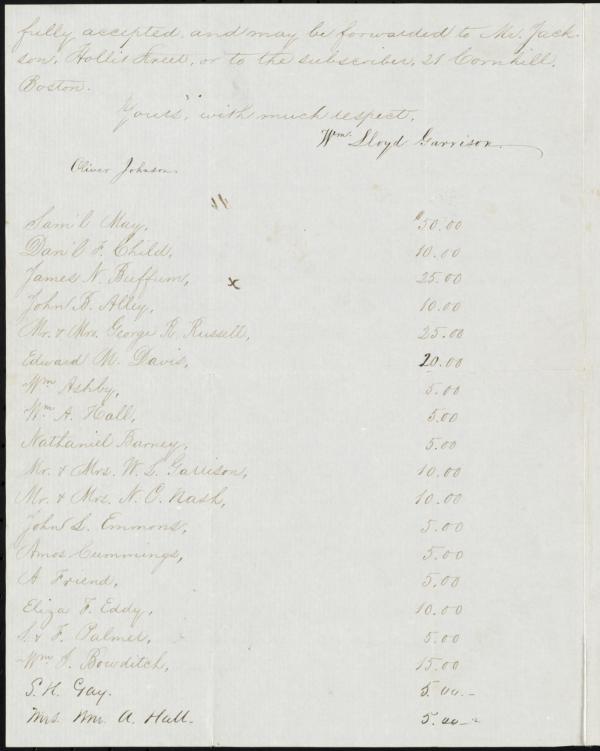 fully accepted, and may be forwarded to Mr. Jack-
son, Hollis Street, or to the subscriber, 21 Cornhill,
Boston.
Yours, with much respect,
Wm. Lloyd Garrison.
Oliver Johnson.
Sam'l May, $50.00
Dan'l F. Child, 10.00
James N. Buffum, x 25.00
John B. Alley, 10.00
Mr. & Mrs. George R. Russell, 25.00
Edward M. Davis, 20.00
Wm Ashby, 5.00
Wm A. Hall, 5.00
Nathaniel Barney, 5.00
Mr. & Mrs. W. L. Garrison, 10.00
Mr. & Mrs. N. O. Nash, 10.00
John L. Emmons, 5.00
Amos Cummings, 5.00
A Friend, 5.00
Eliza F. Eddy, 10.00
S. & F. Palmer, 5.00
Wm I. Bowditch, 15.00
S. H. Gay. 5.00.-
Mrs. Wm. A. Hall. 5.00-